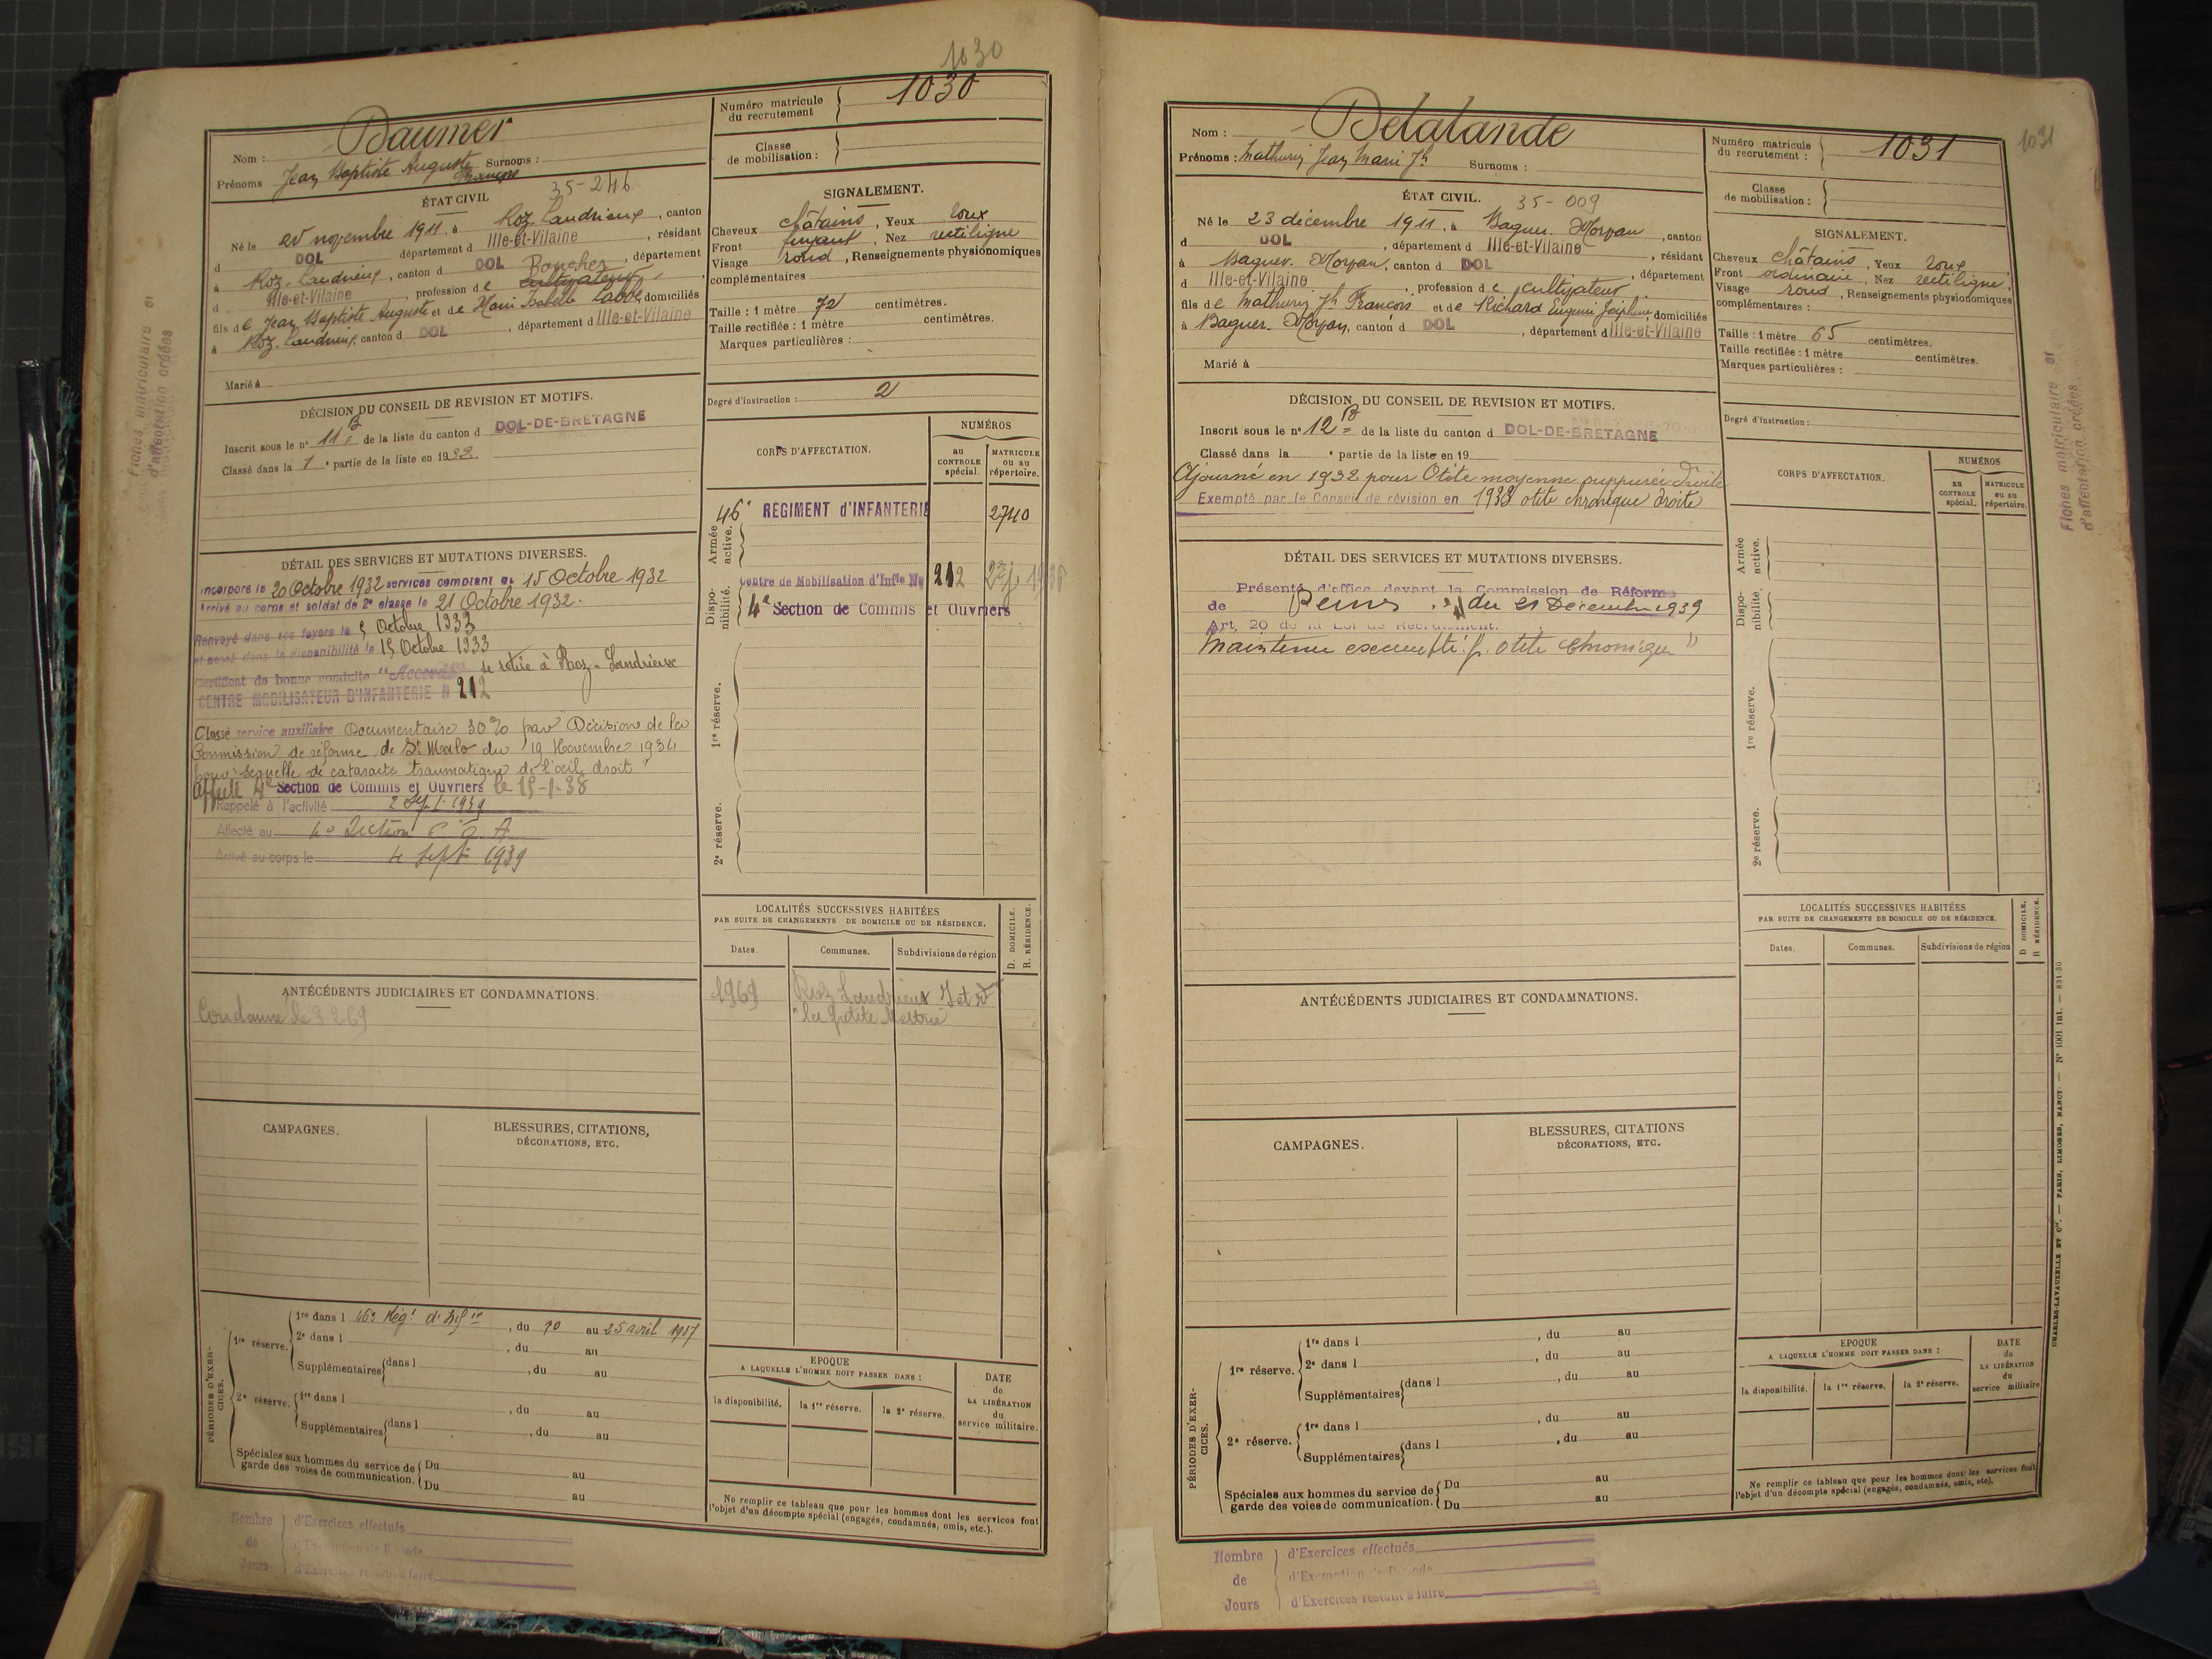 1030
Nom : Daumer
Prénoms Jean Baptiste Auguste François Surnoms :
ÉTAT CIVIL 35-246
Né le 20 novembre 1911, à Roz Landrieux, canton
d DOL département d Ille-et-Vilaine, résidant
à Roz-Landrieux, canton d DOL Boucher, département
d Ille-et-Vilaine, profession de cultivateur,
fils de Jean Baptiste Auguste et de Marie Isabelle Labbé, domiciliés
à Roz-Landrieux, canton d DOL, département d Ille-et-Vilaine
Marié à
DÉCISION DU CONSEIL DE REVISION ET MOTIFS.
Inscrit sous le n° 11 B de la liste du canton d DOL-DE-BRETAGNE
Classé dans la 1e partie de la liste en 1932.
DÉTAIL DES SERVICES ET MUTATIONS DIVERSES.
Incorporé le 20 Octobre 1932 services comptant du 15 Octobre 1932
Arrivé au corps et soldat de 2e classe le 21 Octobre 1932.
Renvoyé dans ses foyers le 5 Octobre 1933
et passé dans la disponibilité le 15 Octobre 1933
Certificat de bonne conduite "Accordé" se retire à Roz-Landrieux
CENTRE MOBILISATEUR D'INFANTERIE N 212
Classé service auxiliaire Documentaire 30% par Décision de la
Commission de réforme de St Malo du 19 Novembre 1934
pour "sequelle de cataracte traumatique de l'œil droit"
Affecté 4e Section de Commis et Ouvriers le 15-1-38
Rappelé à l'activité 2 Sept 1939
Affecté au 4e Section C O A
Arrivé au corps le 4 Sept 1939
ANTÉCÉDENTS JUDICIAIRES ET CONDAMNATIONS.
Condamné le 3-2-69
CAMPAGNES.
BLESSURES, CITATIONS,
DÉCORATIONS, ETC.
PÉRIODES D'EXERCICES.
1re réserve. 1re dans l 46e Régt d'Infie, du 10 au 25 avril 1937
2e dans l , du au
Supplémentaires dans l , du au
2e réserve. 1re dans l , du au
Supplémentaires dans l , du au
Spéciales aux hommes du service de Du au
garde des voies de communication. Du au
Nombre de Jours
d'Exercices effectués
d'Exemption de Période
d'Exercices restant à faire
Fiches matriculaire et
d'affectation créées
Numéro matricule
du recrutement 1030
Classe
de mobilisation :
SIGNALEMENT.
Cheveux châtains, Yeux roux
Front fuyant, Nez rectiligne
Visage rond, Renseignements physionomiques
complémentaires
Taille : 1 mètre 72 centimètres.
Taille rectifiée : 1 mètre centimètres.
Marques particulières :
Degré d'instruction : 2
CORPS D'AFFECTATION.
NUMÉROS
au CONTROLE spécial.
MATRICULE ou au répertoire.
Armée active.
46e REGIMENT d'INFANTERIE 2740
Disponibilité.
Centre de Mobilisation d'Infie No 212
4e Section de Commis et Ouvriers
1re réserve.
2e réserve.
LOCALITÉS SUCCESSIVES HABITÉES
PAR SUITE DE CHANGEMENTS DE DOMICILE OU DE RÉSIDENCE.
Dates. Communes. Subdivisions de région D. DOMICILE. R. RÉSIDENCE.
1969 Roz Landrieux I et V
"la petite
EPOQUE
A LAQUELLE L'HOMME DOIT PASSER DANS :
la disponibilité. la 1re réserve. la 2e réserve.
DATE
de
LA LIBÉRATION
du
service militaire.
Ne remplir ce tableau que pour les hommes dont les services font
l'objet d'un décompte spécial (engagés, condamnés, omis, etc.).
1031
Nom : Delalande
Prénoms : Mathurin Jean Marie Jh Surnoms :
ÉTAT CIVIL. 35-009
Né le 23 décembre 1911, à Baguer-Morvan, canton
d DOL, département d Ille-et-Vilaine, résidant
à Baguer-Morvan, canton d DOL, département
d Ille-et-Vilaine, profession de cultivateur
fils de Mathurin Jh François et de Richard Eugénie Joséphine, domiciliés
à Baguer-Morvan, canton d DOL, département d Ille-et-Vilaine
Marié à
DÉCISION DU CONSEIL DE REVISION ET MOTIFS.
Inscrit sous le n° 12 B de la liste du canton d DOL-DE-BRETAGNE
Classé dans la e partie de la liste en 19
Ajourné en 1932 pour Otite moyenne suppurée droite
Exempté par le Conseil de révision en 1933 otite chronique droite
DÉTAIL DES SERVICES ET MUTATIONS DIVERSES.
Présenté d'office devant la Commission de Réforme
de Rennes du 21 Décembre 1939
Art, 20 de la Loi de Recrutement.
Maintenu exempté p. otite Chronique"
ANTÉCÉDENTS JUDICIAIRES ET CONDAMNATIONS.
CAMPAGNES.
BLESSURES, CITATIONS
DÉCORATIONS, ETC.
PÉRIODES D'EXERCICES.
1re réserve. 1re dans l , du au
2e dans l , du au
Supplémentaires dans l , du au
2e réserve. 1re dans l , du au
Supplémentaires dans l , du au
Spéciales aux hommes du service de Du au
garde des voies de communication. Du au
Nombre de Jours
d'Exercices effectués
d'Exemption de Période
d'Exercices restant à faire
Numéro matricule
du recrutement : 1031
Classe
de mobilisation :
SIGNALEMENT.
Cheveux châtains, Yeux roux
Front ordinaire, Nez rectiligne
Visage rond, Renseignements physionomiques
complémentaires :
Taille : 1 mètre 65 centimètres.
Taille rectifiée : 1 mètre centimètres.
Marques particulières :
Degré d'instruction :
CORPS D'AFFECTATION.
NUMÉROS
au CONTROLE spécial.
MATRICULE ou au répertoire.
Armée active.
Disponibilité.
1re réserve.
2e réserve.
LOCALITÉS SUCCESSIVES HABITÉES
PAR SUITE DE CHANGEMENTS DE DOMICILE OU DE RÉSIDENCE.
Dates. Communes. Subdivisions de région D DOMICILE. R RÉSIDENCE.
EPOQUE
A LAQUELLE L'HOMME DOIT PASSER DANS :
la disponibilité. la 1re réserve. la 2e réserve.
DATE
du
LA LIBÉRATION
du
service militaire
Ne remplir ce tableau que pour les hommes dont les services font
l'objet d'un décompte spécial (engagés, condamnés, omis, etc).
Fiches matriculaire et
d'affectation créées
CHARLES-LAVAUZELLE ET Cie. — PARIS, LIMOGES, NANCY. — N° 1001 int. — 831-30